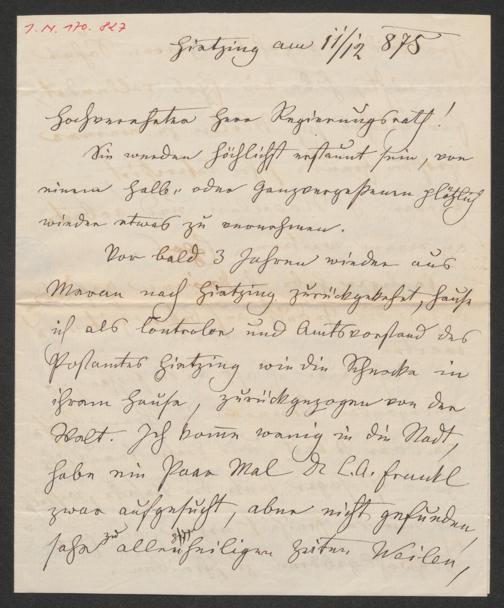 I.N. 170.827
Hietzing am 11/12 875
Hochverehrter Herr Regierungsrath!
Sie werden höchlichst erstaunt sein, von
einem halb- oder Ganzvergeßenen plötzlich
wieder etwas zu vernehmen.
Vor bald 3 Jahren wieder aus
Meran nach Hietzing zurückgekehrt, hause
ich als Controlor und Amtsvorstand des
Postamtes Hietzing wie die Schnecke in
ihrem Hause, zurückgezogen von der
Welt. Ich komme wenig in die Stadt,
habe ein Paar Mal Dr L. A. Frankl
zwar aufgesucht, aber nicht gefunden,
sehe zu allenheiligen Zeiten Weilen,